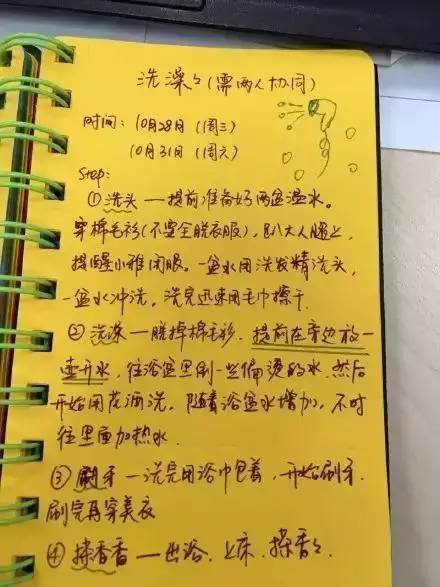 洗澡々(需两人协同)
时间：10月28日(周三)
10月31日(周六)
Step:
①洗头—提前准备好两盆温水。
穿棉毛衫(不要全脱衣服)，趴大人腿上，
提醒小雅闭眼。一盆水用洗发精洗头，
一盆水冲洗。洗完迅速用毛巾擦干.
②洗澡—脱掉棉毛衫.提前在旁边放一
壶开水，往浴盆里倒一些偏烫的水.然后
开始用花洒洗.随着浴盆水增加，不时
往里面加热水.
③刷牙—洗完用浴巾包着，开始刷牙.
刷完再穿美衣
④搽香香—出浴.上床.搽香々.